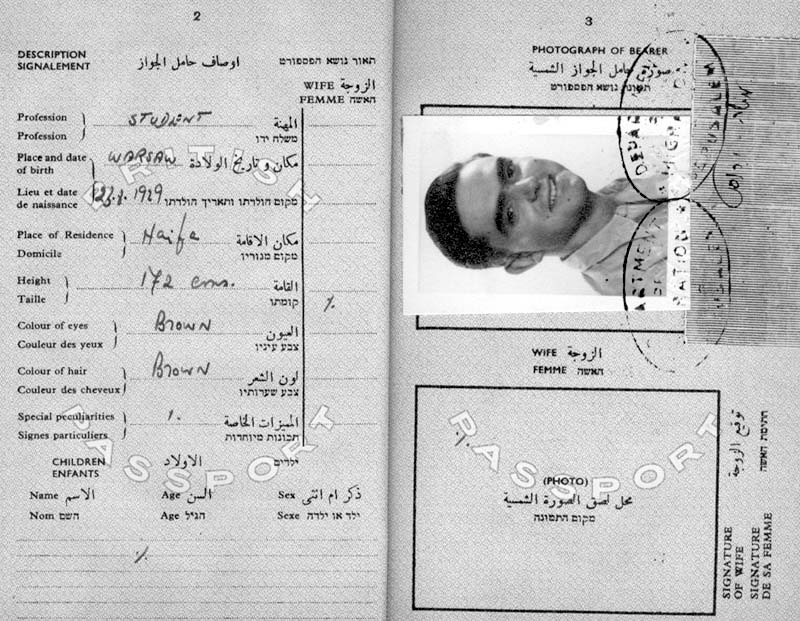 2
DESCRIPTION
SIGNALEMENT
اوصاف حامل الجواز
תאור נושא הפספורט
WIFE الزوجة
FEMME האשה
Profession STUDENT المهنة
Profession משלח ידו
Place and date of birth WARSAW مكان و تاريخ الولادة
Lieu et date de naissance 1929 מקום הולדתו ותאריך הולדתו
Place of Residence Haifa مكان الاقامة
Domicile מקום מגוריו
Height 172 cms. القامة
Taille קומתו
Colour of eyes BROWN العيون
Couleur des yeux צבע עיניו
Colour of hair BROWN لون الشعر
Couleur des cheveux צבע שערותיו
Special peculiarities المميزات الخاصة
Signes particuliers תכונות מיוחדות
CHILDREN الاولاد ילדים
ENFANTS
Name الاسم Age السن Sex ذكر ام انثى
Nom השם Age הגיל Sexe ילד או ילדה
BRITISH
PASSPORT
3
PHOTOGRAPH OF BEARER
صورة حامل الجواز الشمسية
תמונת נושא הפספורט
WIFE الزوجة
FEMME האשה
PASSPORT
(PHOTO)
محل لصق الصورة الشمسية
מקום התמונה
SIGNATURE
OF WIFE
SIGNATURE
DE SA FEMME
توقيع الزوجة
חתימת האשה